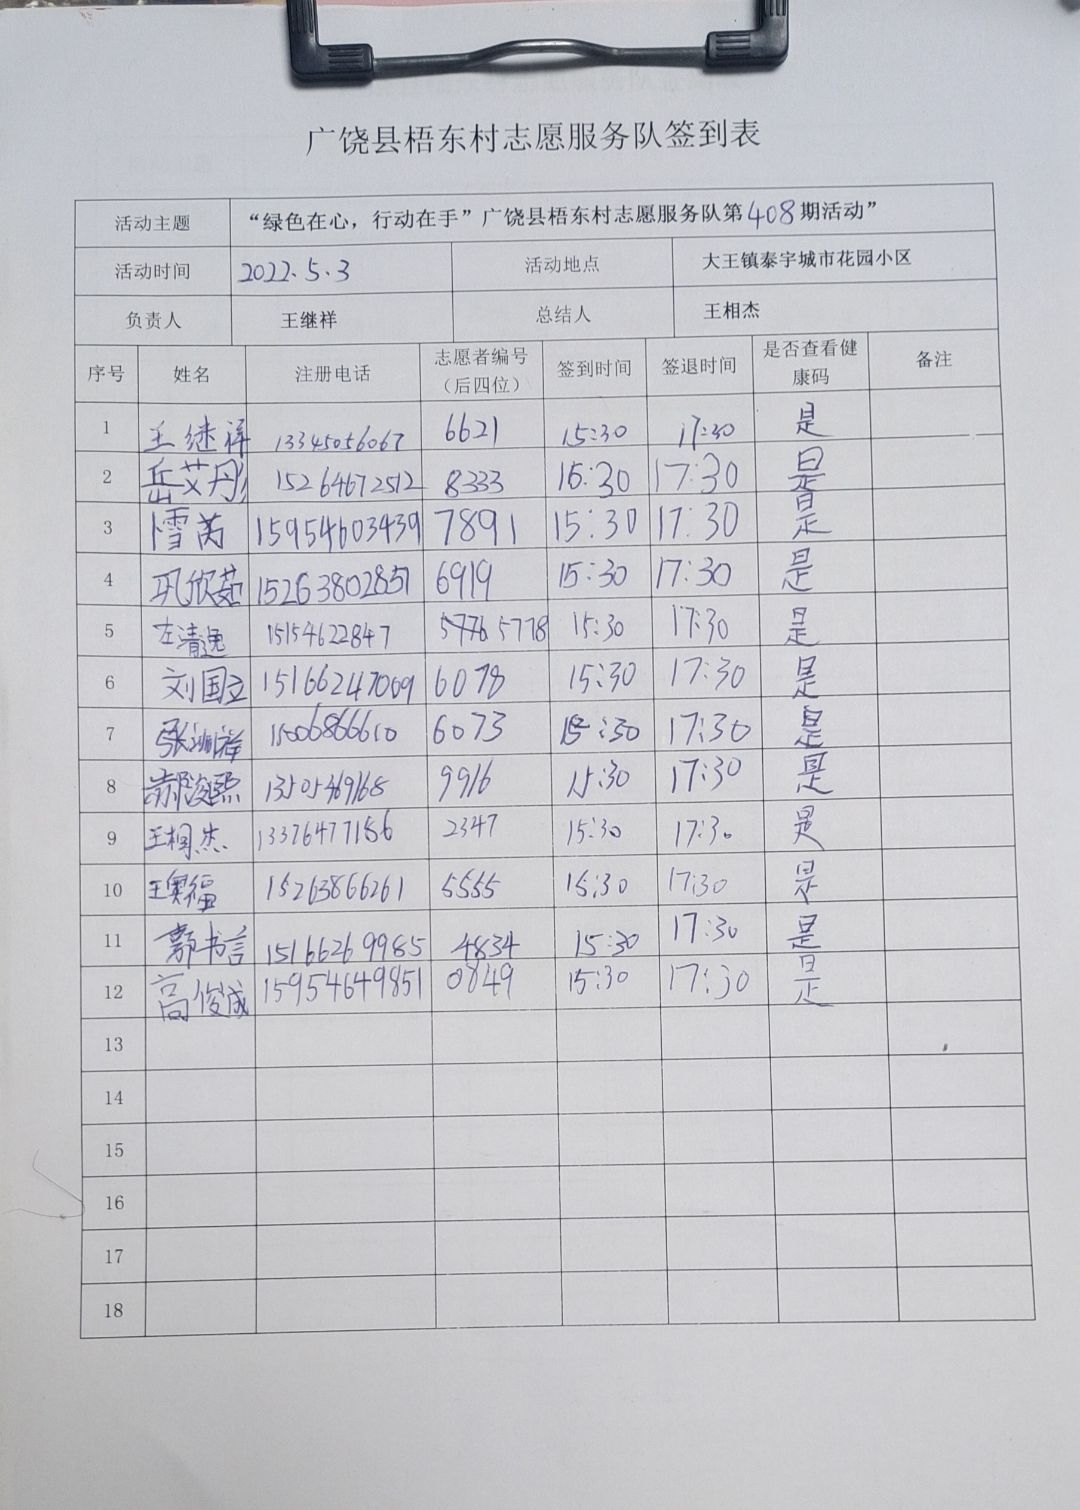 广饶县梧东村志愿服务队签到表
活动主题 “绿色在心，行动在手”广饶县梧东村志愿服务队第408期活动”
活动时间 2022.5.3 活动地点 大王镇泰宇城市花园小区
负责人 王继祥 总结人 王相杰
序号 姓名 注册电话 志愿者编号（后四位） 签到时间 签退时间 是否查看健康码 备注
1 王继祥 13345056067 6621 15:30 17:30 是
2 岳艾彤 15264672512 8333 15:30 17:30 是
3 雪芮 15954603439 7891 15:30 17:30 是
4 巩欣茹 15263802857 6919 15:30 17:30 是
5 左清逸 15154622847 5778 15:30 17:30 是
6 刘国立 15166247069 6078 15:30 17:30 是
7 张 祥 1506866610 6073 15:30 17:30 是
8 郝浚熙 13505469168 9916 15:30 17:30 是
9 王相杰 13376477156 2347 15:30 17:30 是
10 王奥福 15263866261 5555 15:30 17:30 是
11 书言 15166269985 4834 15:30 17:30 是
12 高俊成 15954649851 0849 15:30 17:30 是
13
14
15
16
17
18